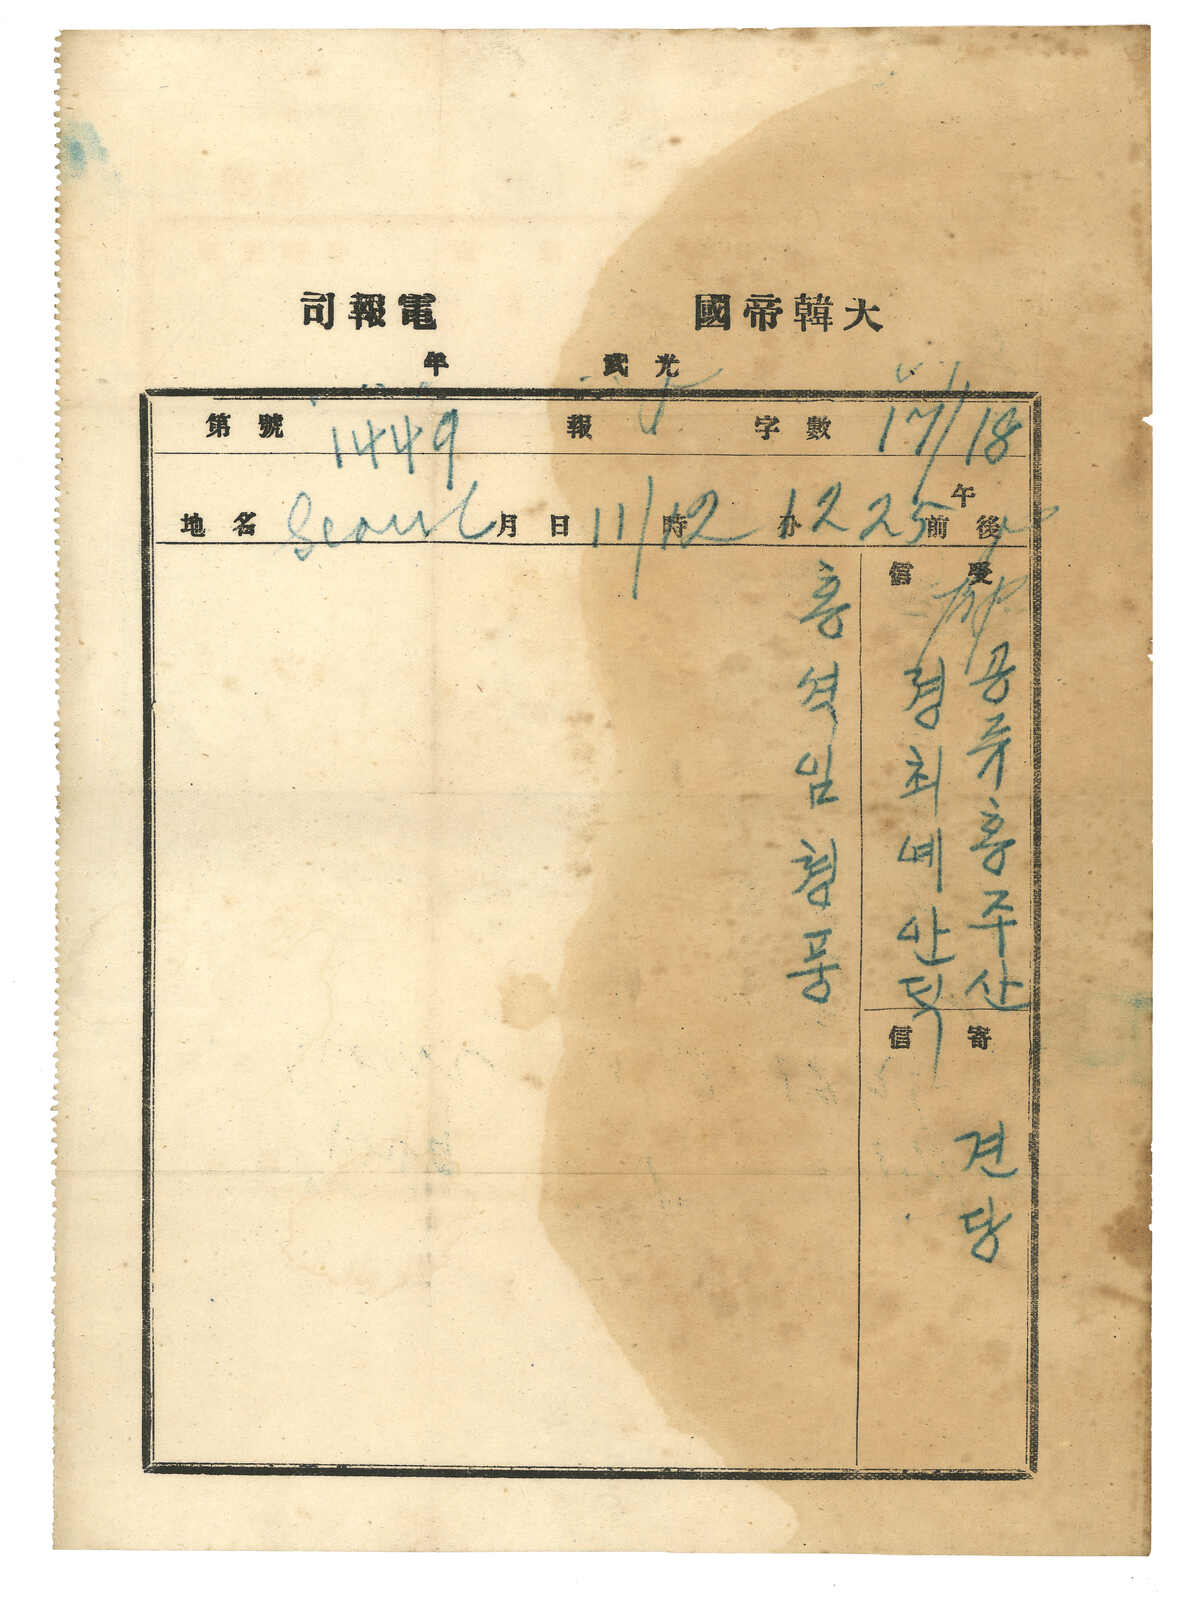 大韓帝國 電報司
光武 年
第 號 1449 報 字數 17/18
地名 Seoul 月 日 11/12 時 12 分 25 午前後
受信
공쥬홍주산
령최녜안덕
寄信
견당
홍셕임형풍